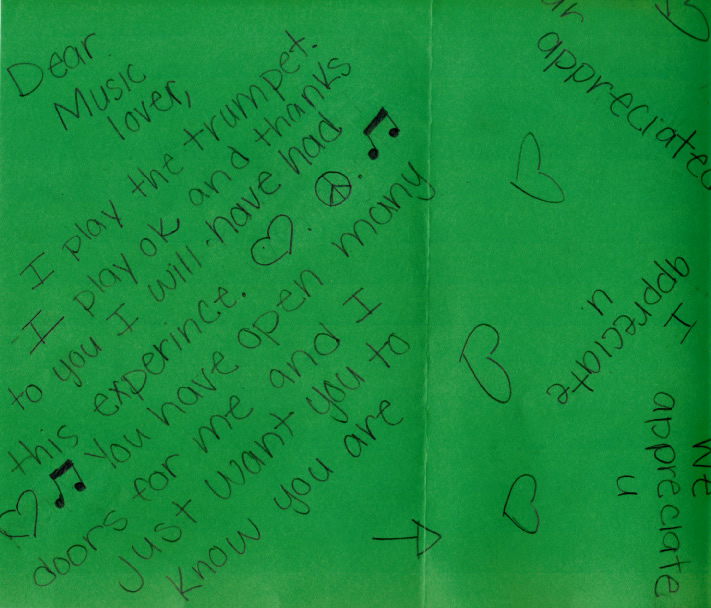 Dear
Music
lover,
I play the trumpet.
I play ok and thanks
to you I will have had
this experince.
You have open many
doors for me and I
Just want you to
Know you are
appreciated
I
appreciate
u
We
appreciate
u